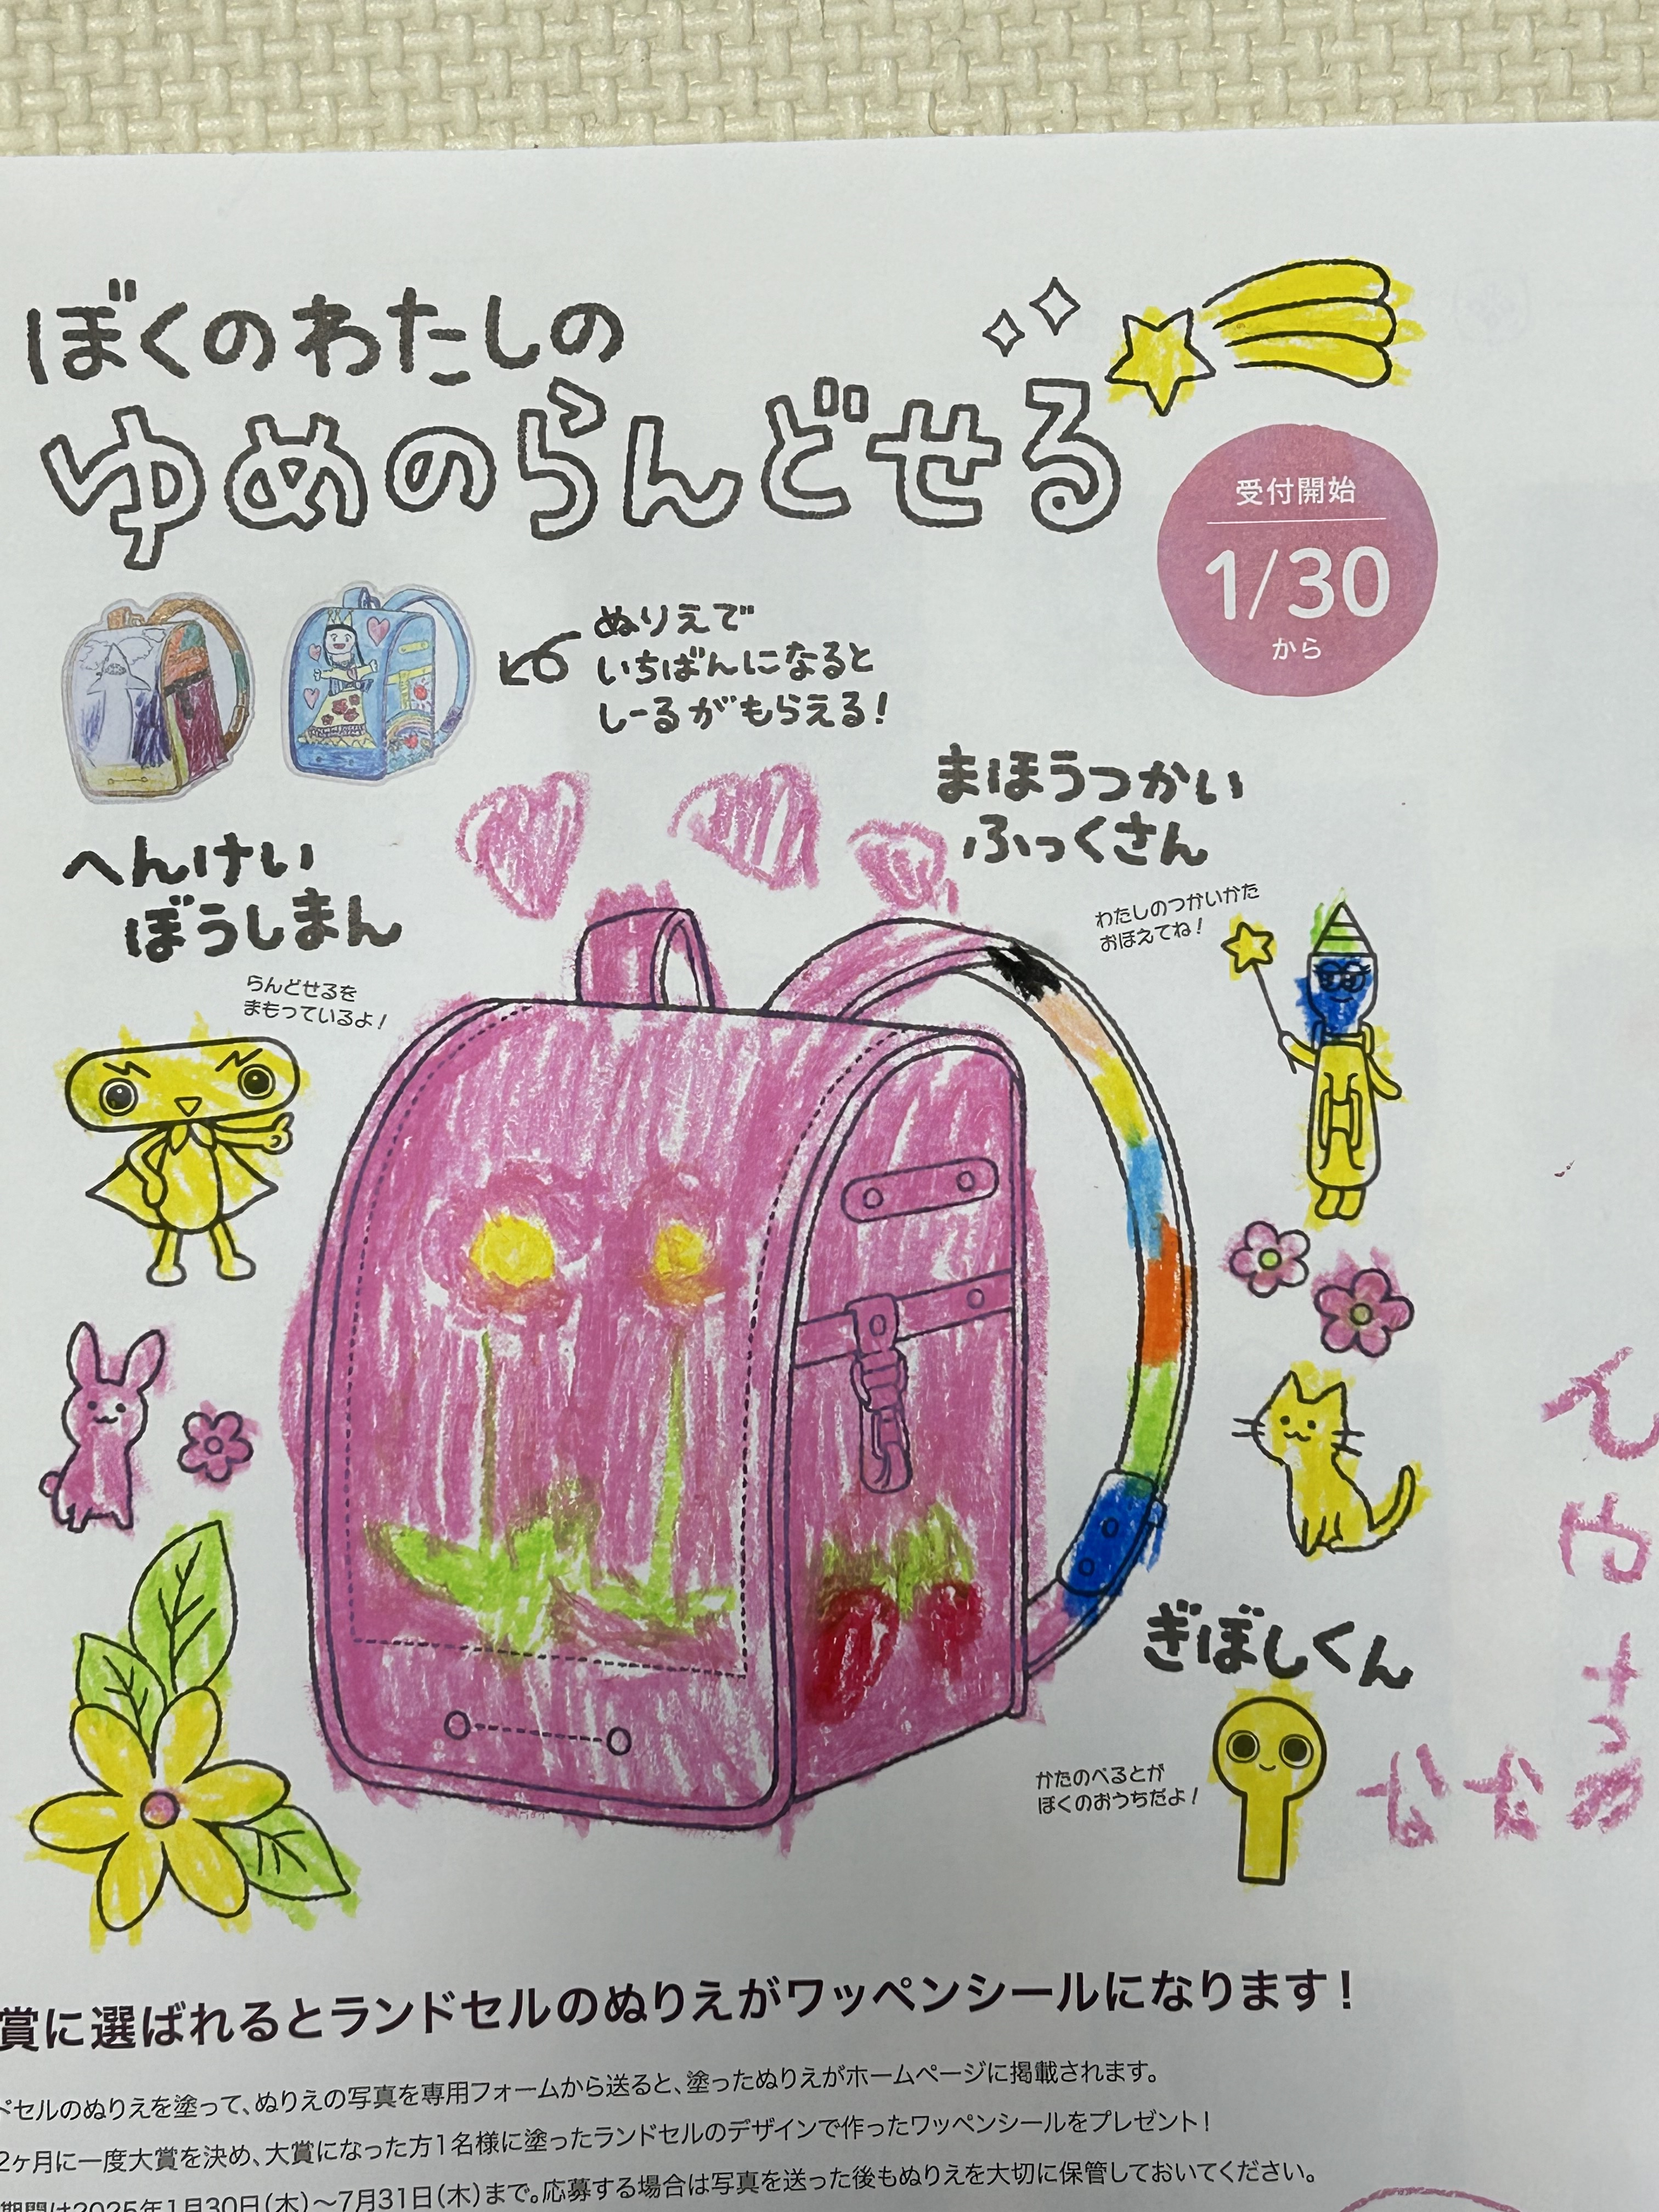 ぼくのわたしの
ゆめのらんどせる
受付開始
1/30
から
ぬりえで
いちばんになると
しーるがもらえる!
まほうつかい
ふっくさん
わたしのつかいかた
おぼえてね!
へんけい
ぼうしまん
らんどせるを
まもっているよ!
ぎぼしくん
かたのべるとが
ぼくのおうちだよ!
賞に選ばれるとランドセルのぬりえがワッペンシールになります!
ドセルのぬりえを塗って、ぬりえの写真を専用フォームから送ると、塗ったぬりえがホームページに掲載されます。
2ヶ月に一度大賞を決め、大賞になった方1名様に塗ったランドセルのデザインで作ったワッペンシールをプレゼント!
期間は2025年1月30日(木)～7月31日(木)まで。応募する場合は写真を送った後もぬりえを大切に保管しておいてください。